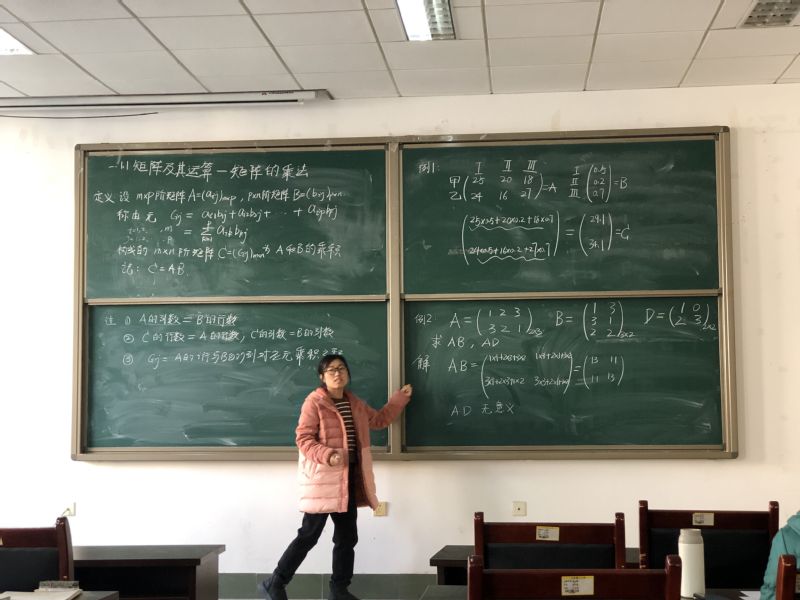 1.1矩阵及其运算一矩阵的乘法
定义 设 m×p阶矩阵A=(aij)m×p, p×n阶矩阵B=(bij)p×n
称由元 Cij = ai1b1j+ai2b2j+ … + aipbpj
= Σ aikbkj
构成的 m×n 阶矩阵 C=(Cij)m×n为 A和B的乘积
法: C=AB
注 ① A的列数 = B的行数
② C的行数 = A的行数, C的列数=B的列数
③ Cij = A的i行与B的j列对应元乘积之和
例1:
I II III
甲 25 20 18
乙 24 16 27 =A
I 0.5
II 0.2
III 0.7 =B
25×0.5+20×0.2+18×0.7
24×0.5+16×0.2+27×0.7
= 29.1
34.1 =C
例2: A= (1 2 3
3 2 1)2×3
B= (1 3
3 1
2 2)3×2
D= (1 0
2 3)2×2
求 AB, AD
解 AB=
= (13 11
11 13)
AD 无意义